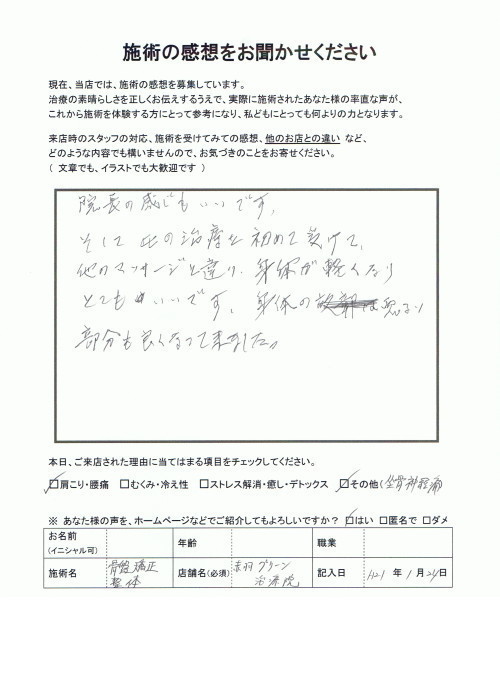 施術の感想をお聞かせください
現在、当店では、施術の感想を募集しています。
治療の素晴らしさを正しくお伝えするうえで、実際に施術されたあなた様の率直な声が、
これから施術を体験する方にとって参考になり、私どもにとっても何よりの力となります。
来店時のスタッフの対応、施術を受けてみての感想、他のお店との違い など、
どのような内容でも構いませんので、お気づきのことをお寄せください。
( 文章でも、イラストでも大歓迎です )
院長の感じもいいです。
そして此の治療を初めて受けて、
他のマッサージと違い、身体が軽くなり
とてもいいです。身体の悪るい
部分も良くなって来ました。
本日、ご来店された理由に当てはまる項目をチェックしてください。
☑肩こり・腰痛 □むくみ・冷え性 □ストレス解消・癒し・デトックス ☑その他(坐骨神経痛)
※ あなた様の声を、ホームページなどでご紹介してもよろしいですか? ☑はい □匿名で □ダメ
お名前 年齢 職業
(イニシャル可)
施術名 骨盤矯正 店舗名(必須) 赤羽グリーン 記入日 年 1月 21日
整体 治療院